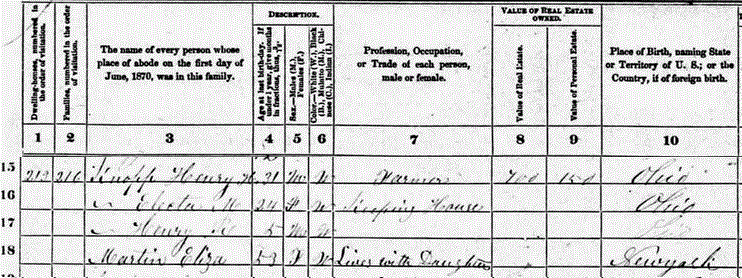 DESCRIPTION. VALUE OF REAL ESTATE OWNED.
Dwelling-houses, numbered in the order of visitation.
Families, numbered in the order of visitation.
The name of every person whose place of abode on the first day of June, 1870, was in this family.
Age at last birth-day. If under 1 year, give months in fractions, thus,
Sex.—Males (M.), Females (F.)
Color.—White (W.), Black (B.), Mulatto (M.), Chinese (C.), Indian (I.)
Profession, Occupation, or Trade of each person, male or female.
Value of Real Estate.
Value of Personal Estate.
Place of Birth, naming State or Territory of U. S.; or the Country, if of foreign birth.
1 2 3 4 5 6 7 8 9 10
15 Knapp Henry 31 M W Farmer 700 150 Ohio
16 " Electa M 24 F W Keeping House Ohio
17 " Henry 5 M W
18 Martin Eliza 53 F W Lives with Daughter Newyork